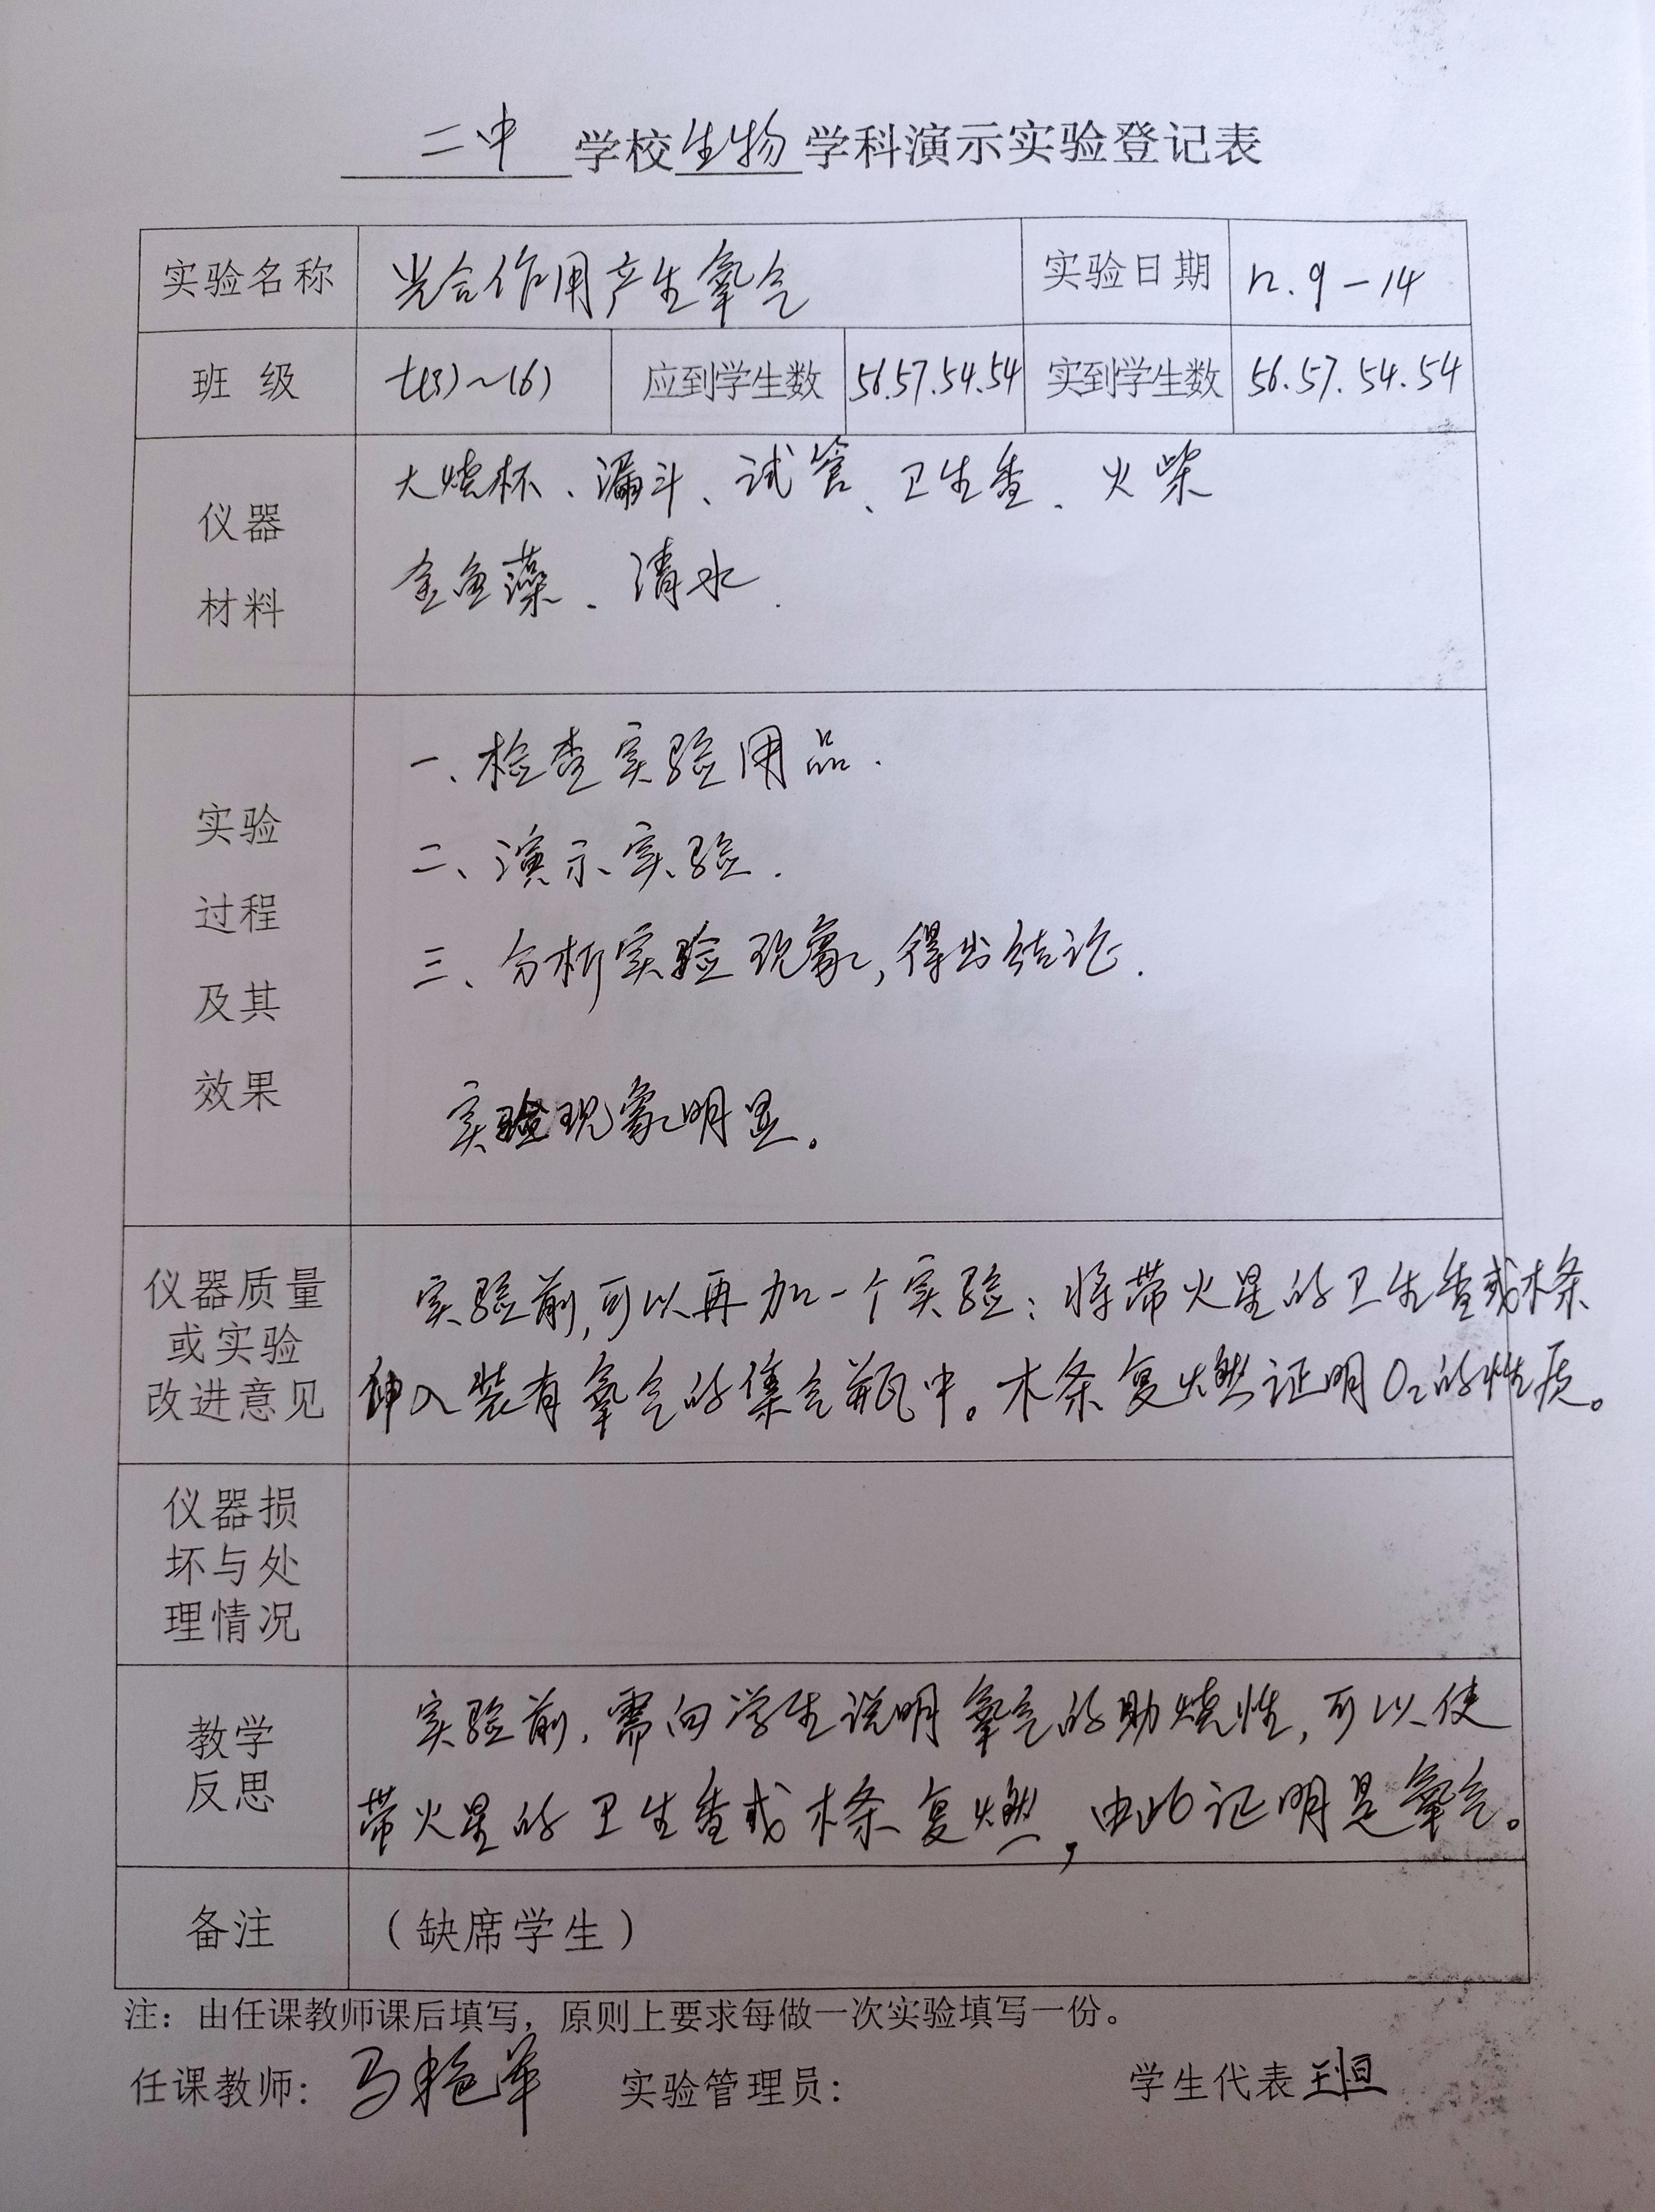 二中 学校 生物 学科演示实验登记表
实验名称 光合作用产生氧气 实验日期 12.9-14
班 级 七(3)~(6) 应到学生数 56.57.54.54 实到学生数 56.57.54.54
仪器
材料
大烧杯、漏斗、试管、卫生香、火柴
金鱼藻、清水.
实验
过程
及其
效果
一、检查实验用品.
二、演示实验.
三、分析实验现象,得出结论.
实验现象明显。
仪器质量
或实验
改进意见
实验前,可以再加一个实验:将带火星的卫生香或木条
伸入装有氧气的集气瓶中。木条复燃证明O₂的性质。
仪器损
坏与处
理情况
教学
反思
实验前,需向学生说明氧气的助烧性,可以使
带火星的卫生香或木条复燃,由此证明是氧气。
备注 (缺席学生)
注:由任课教师课后填写,原则上要求每做一次实验填写一份。
任课教师: 马艳萍 实验管理员: 学生代表